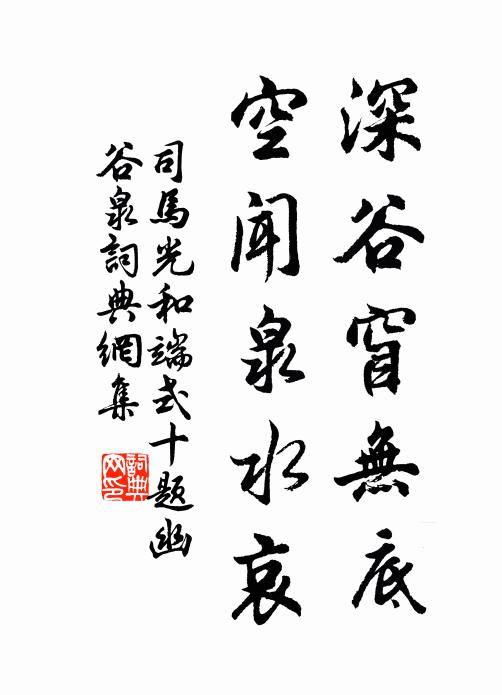 深谷窅無底
空聞泉水哀
司馬光和端式十題幽
谷泉詞典網集
詞典
网印